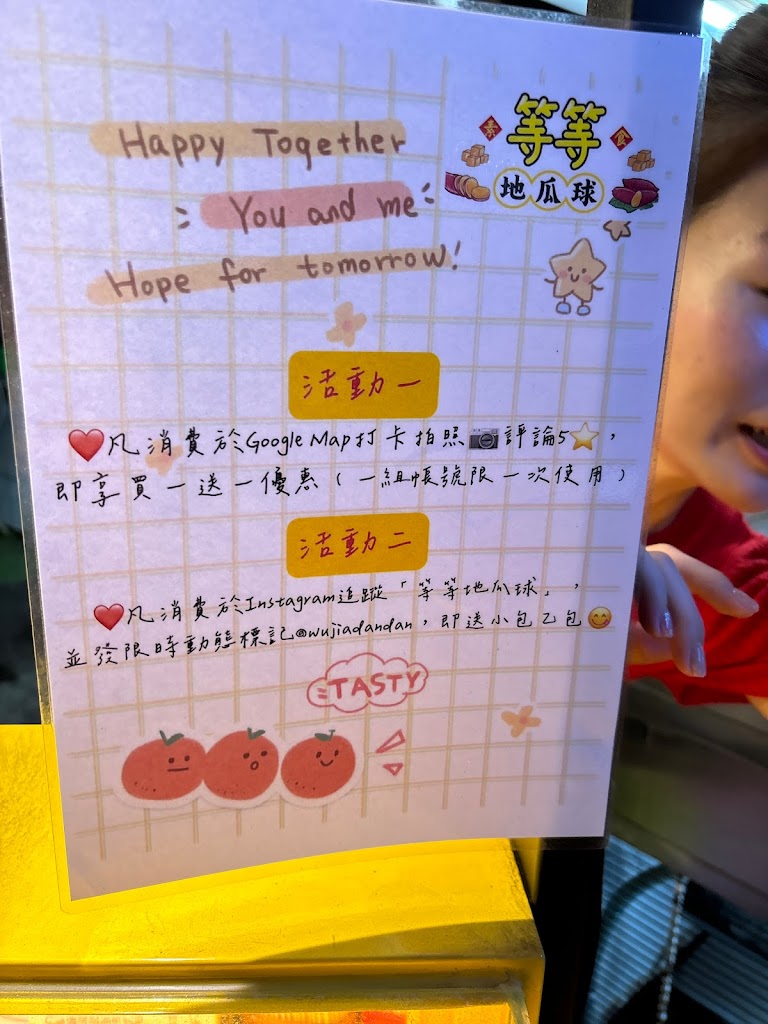 Happy Together
You and me
Hope for tomorrow!
素 等等 食
地瓜球
活動一
❤️凡消費於Google Map打卡拍照📷評論5⭐,
即享買一送一優惠(一組帳號限一次使用)
活動二
❤️凡消費於Instagram追蹤「等等地瓜球」,
並發限時動態標記@wujiadandan,即送小包乙包😋
TASTY